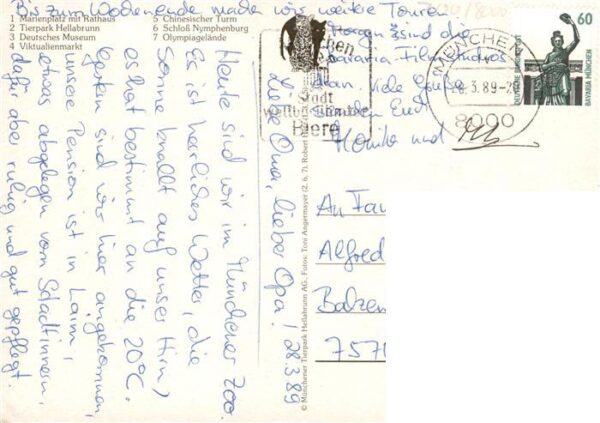 1 Marienplatz mit Rathaus
2 Tierpark Hellabrunn
3 Deutsches Museum
4 Viktualienmarkt
5 Chinesischer Turm
6 Schloß Nymphenburg
7 Olympiagelände
Liebe Oma, lieber Opa! 28.3.89
Heute sind wir im Münchener Zoo.
Es ist herrliches Wetter, die
Sonne knallt auf unser Hirn,
es hat bestimmt an die 20°C.
Gestern sind wir hier angekommen,
unsere Pension ist in Laim,
etwas abgelegen vom Stadtinnern,
dafür aber ruhig und gut gepflegt.
Bis zum Wochenende machen wir weitere Touren
Morgen sind die
Bavaria Filmstudios
dran. Viele Grüße
senden Euch
Monika und
An Fam
Alfred
Balzen
7571
© Münchener Tierpark Hellabrunn AG. Fotos: Toni Angermayer (2, 6, 7), Robert
MÜNCHEN
.3.89-20
8000
Stadt
Biere
60
DEUTSCHE BUNDESPOST
BAVARIA MÜNCHEN